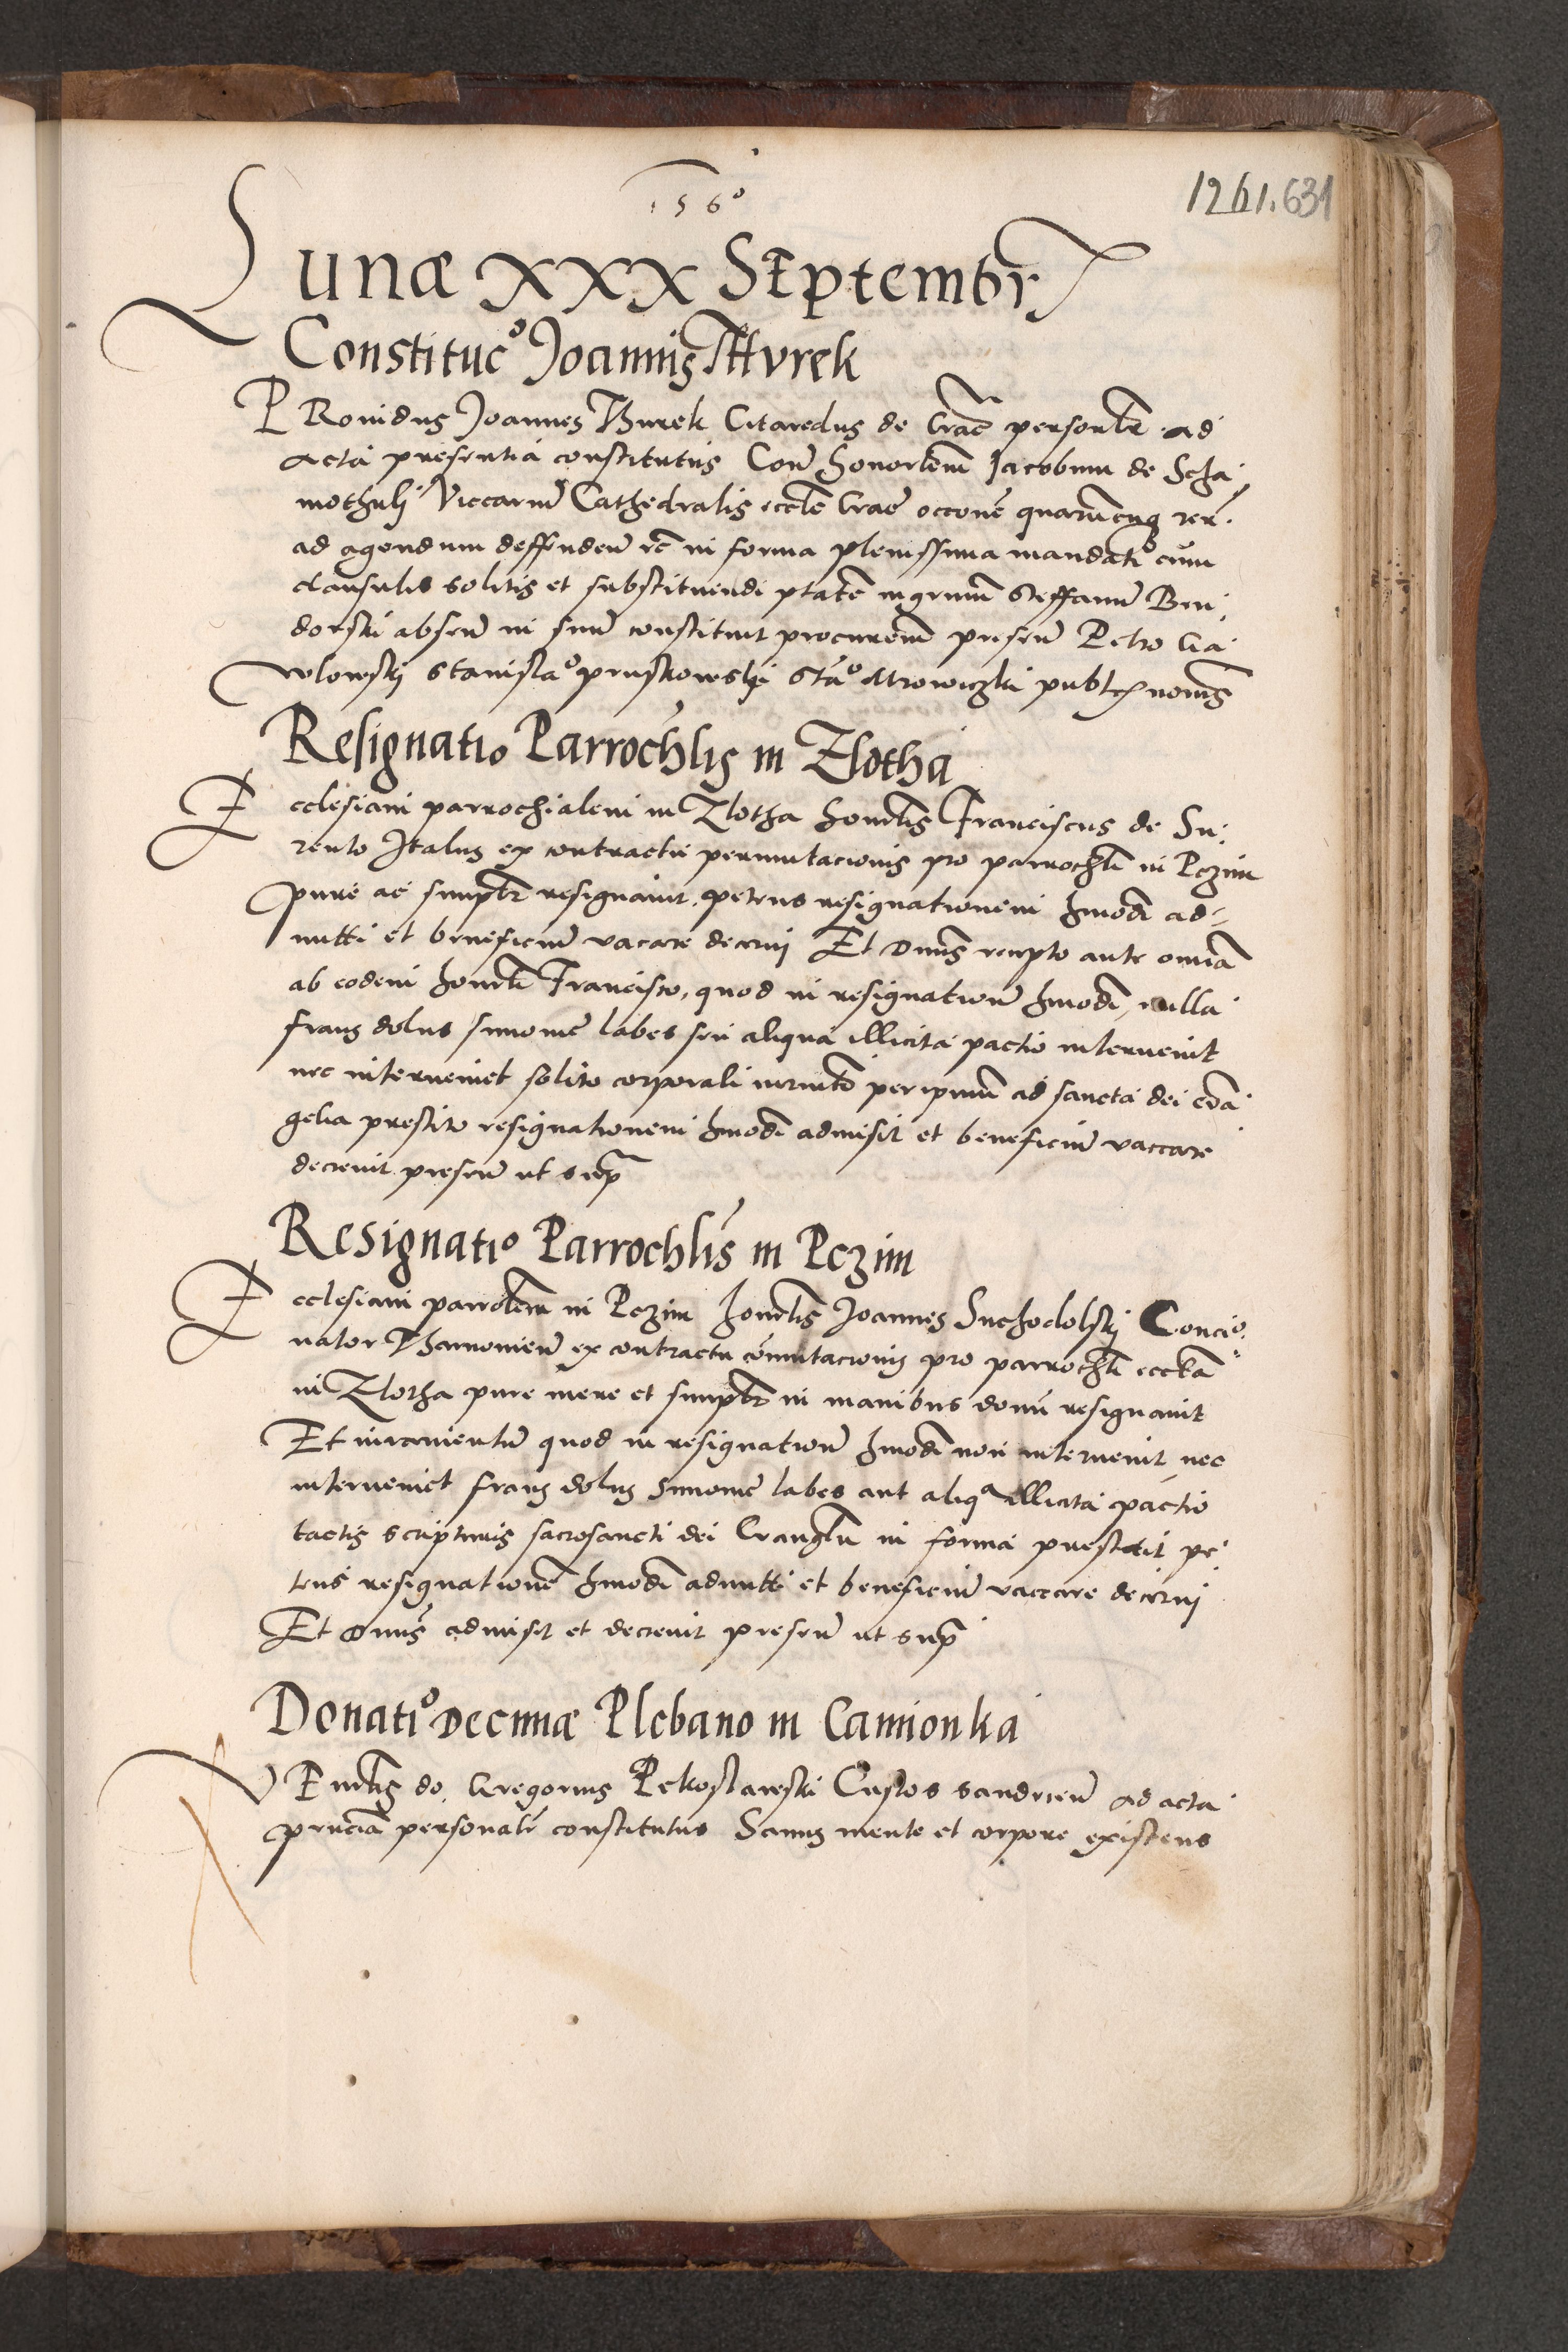 1560
1261. 631
Lunæ XXX Septembr
Constituc° Joannis Thurek
PRouidus Joannes Thurek Citaredus de Crac personlr ad
acta presentia constitutus Con honorlem Jacobum de Scha
mothulj Viccarium Cathedralis eccle Crac occone quarumcunq rerum
ad agendum deffenden etc in forma plenissima mandati cum
clausulis solitis et substituendi ptatem mgrum Steffanum
dorski absen in suum constituit procurem presen Petro Ga
wlowskj Stanislao pruskowskj Stão Mrowiczki publ nons
Resignatio Parrochlis in Zlotha
Ecclesiam parrochialem in Zlotha honorlis Franciscus de Su
rento Italus ex contractu permutacionis pro parrochli in Pczim
pure ac simplr resignauit. petens resignationem hmodi ad-
mitti et beneficium vacare decerni Et Dnus recepto ante omnia
ab eodem honorli Francisco, quod in resignatione hmodi, nulla
fraus dolus simonie labes seu aliqua illicita pactio interuenit
nec interueniet solito corporali iuramto per ipsum ad sancta dei eua
gelia prestito resignationem hmodi admisit et beneficium vaccare
decreuit presen ut supra
Resignatio Parrochlis in Pczim
Ecclesiam parrolem in Pczim honorlis Joannes Suchodolskj Concio
nator Tharnouien ex contractu comutacionis pro parrochli eccla
in Zlotha pure mere et simplr in manibus domi resignauit
Et iuramentum quod in resignatione hmodi non interuenit nec
interueniet fraus dolus simonie labes aut aliqa illicita pactio
tactis scripturis sacrosancti dei Euangelii in forma prestitit pe
tens resignatione hmodi admitti et beneficium vaccare decerni
Et Dnus admisit et decreuit presen ut supra
Donati° decimæ Plebano in Camionka
VEnerlis do. Gregorius Pekoslawski Custos sandricien ad acta
prncia personalr constitutus Sanus mente et corpore existens